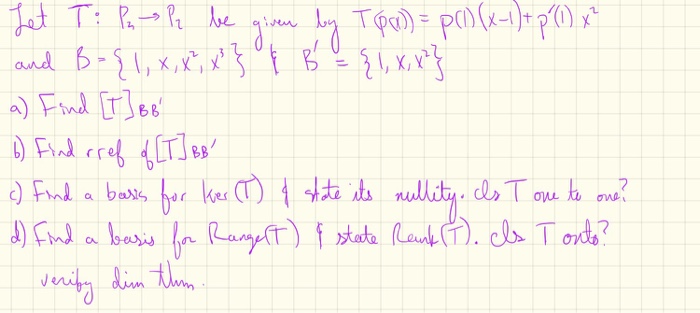 Let T: P₃ → P₂ be given by T(p(x)) = p(1)(x-1) + p'(1) x²
and B = {1, x, x², x³} & B' = {1, x, x²}
a) Find [T]BB'
b) Find rref of [T]BB'
c) Find a basis for Ker(T) & state its nullity. Is T one to one?
d) Find a basis for Range(T) & state Rank(T). Is T onto?
verify dim thm.